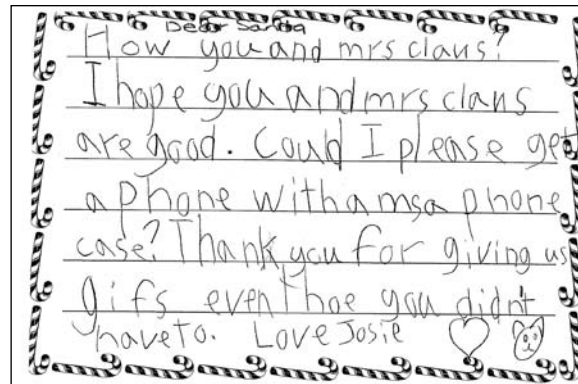 Dear Santa
How you and mrs claus?
I hope you and mrs claus
are good. Could I please get
a phone with a msa phone
case? Thank you for giving us
gifs even thoe you didn't
have to. Love Josie